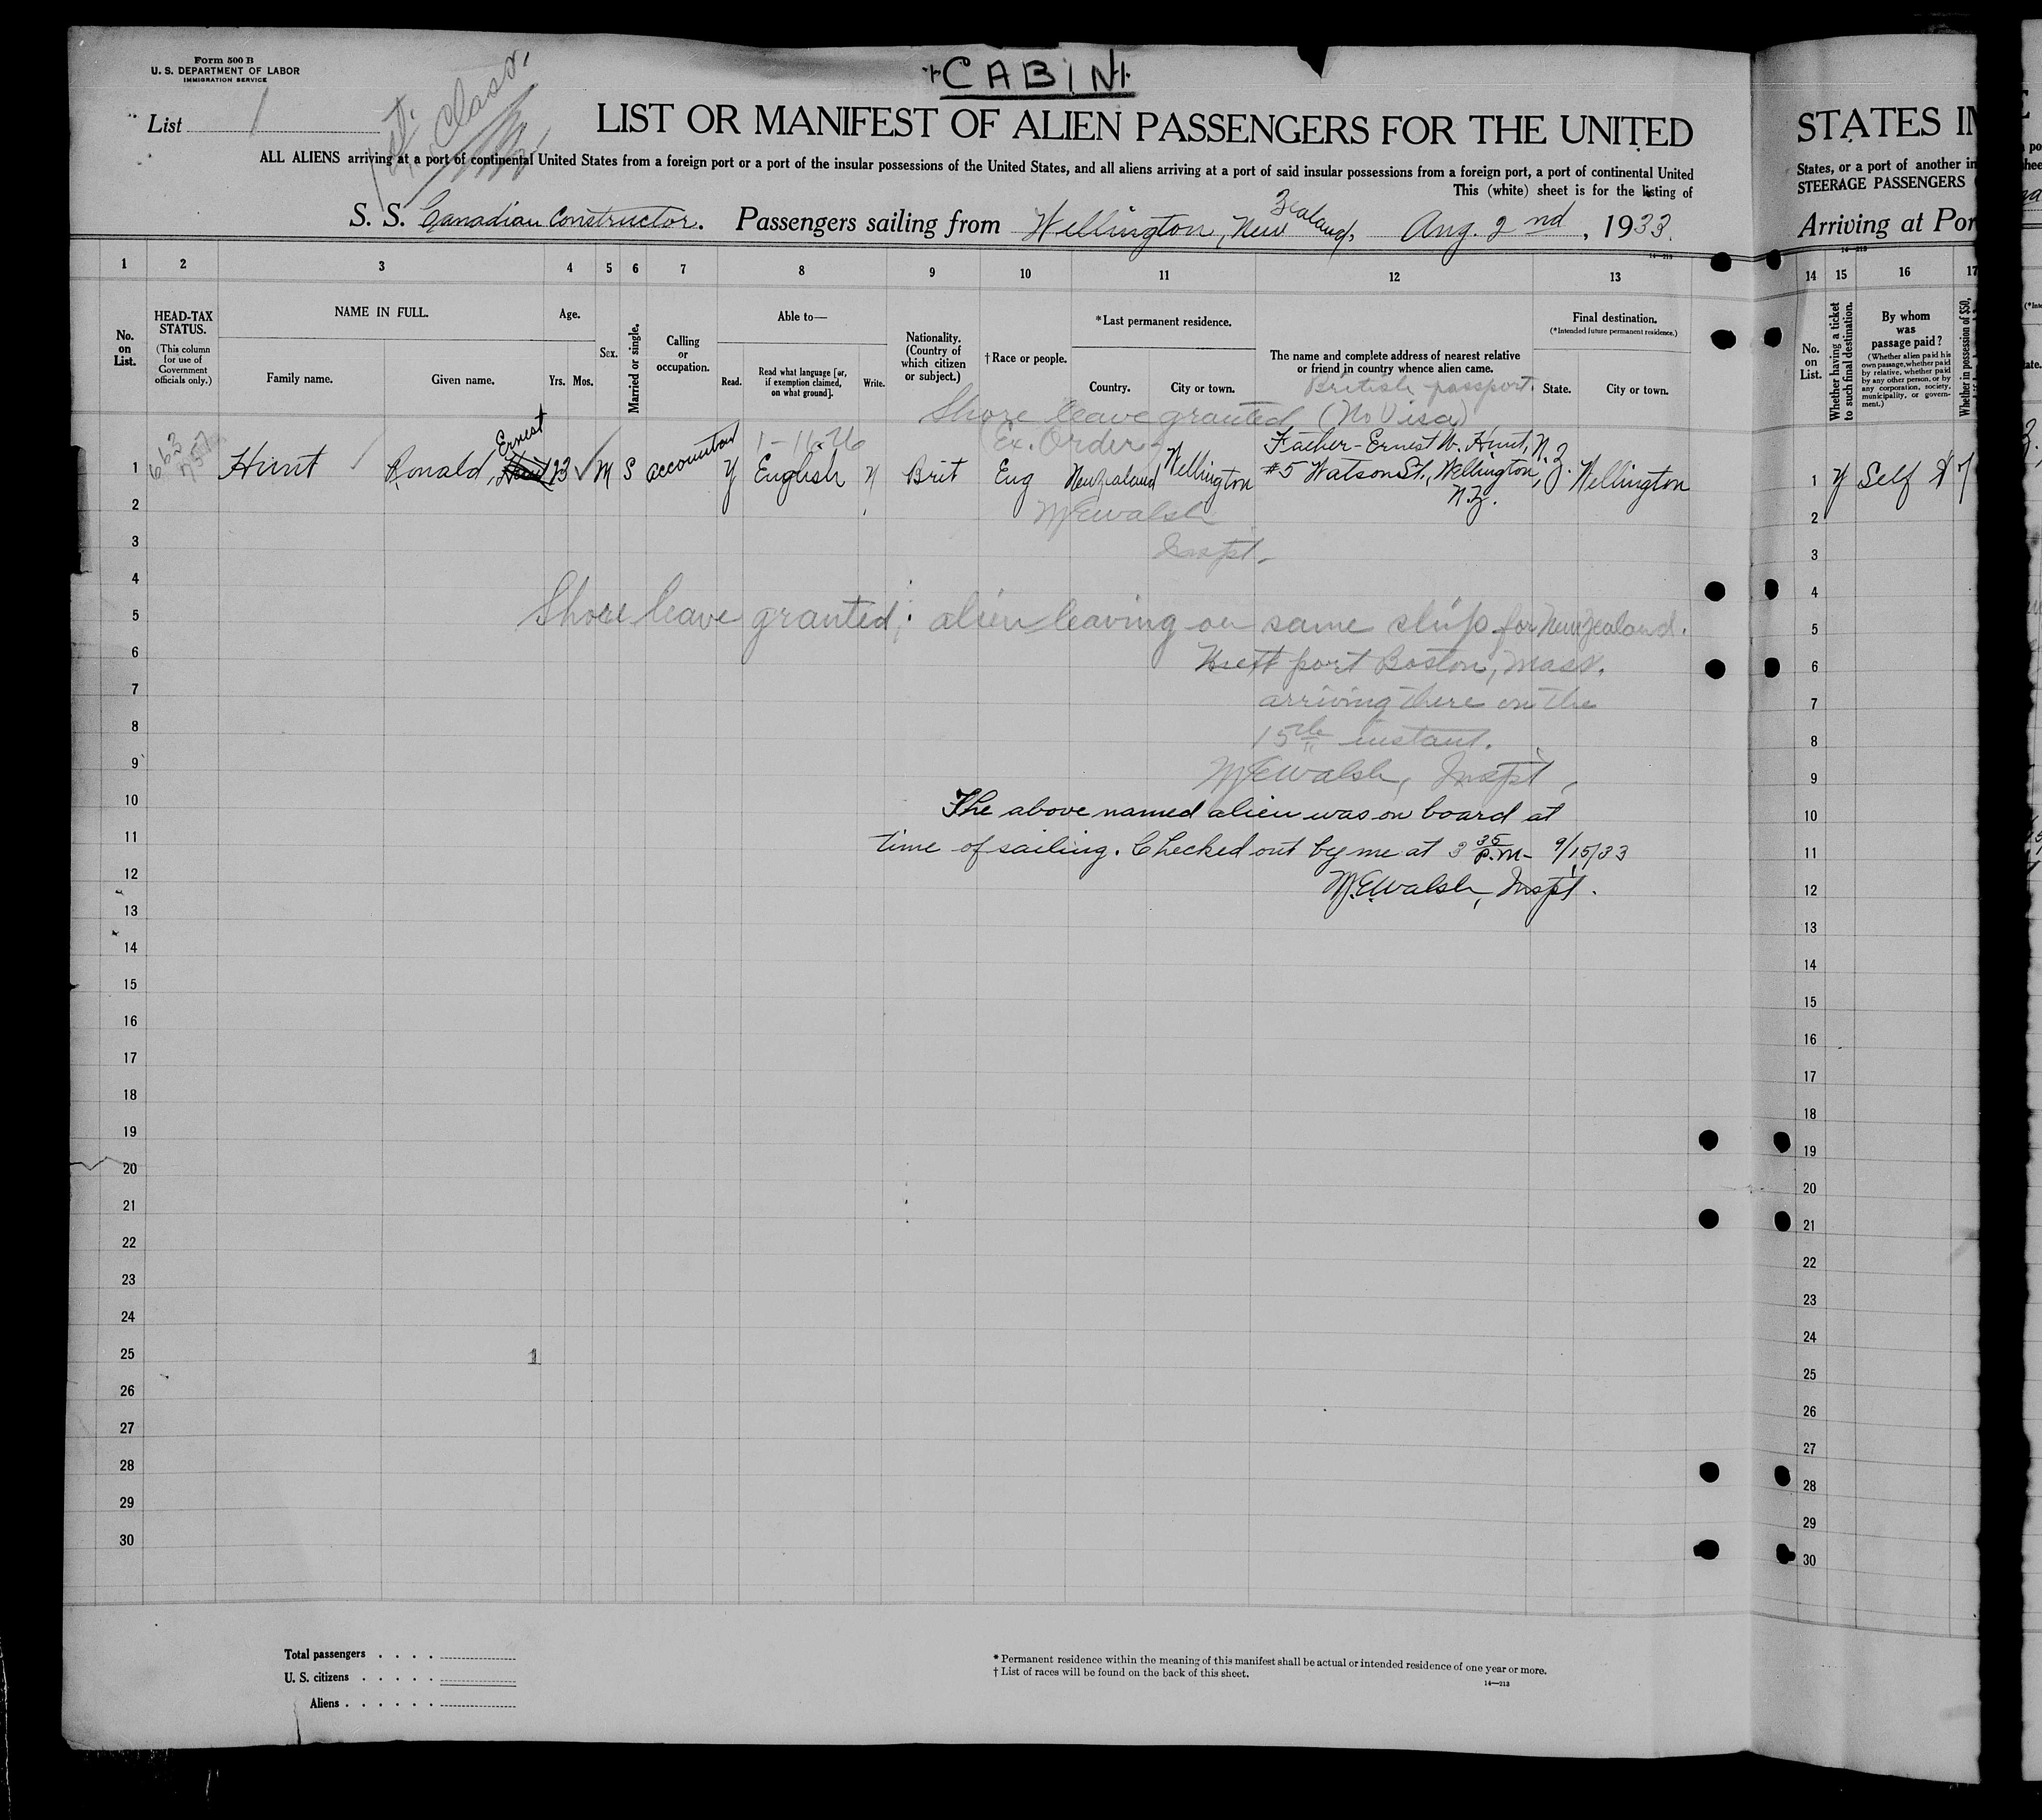 Form 500 B
U. S. DEPARTMENT OF LABOR
IMMIGRATION SERVICE
CABIN
List 1
1st. Class.
LIST OR MANIFEST OF ALIEN PASSENGERS FOR THE UNITED
ALL ALIENS arriving at a port of continental United States from a foreign port or a port of the insular possessions of the United States, and all aliens arriving at a port of said insular possessions from a foreign port, a port of continental United
This (white) sheet is for the listing of
S. S. Canadian Constructor. Passengers sailing from Wellington, New Zealand, Aug. 2nd, 1933.
STATES IN
States, or a port of another in
STEERAGE PASSENGERS
Arriving at Por
14—213
14—213
1 2 3 4 5 6 7 8 9 10 11 12 13
14 15 16 17
No. on List.
HEAD-TAX STATUS.
(This column for use of Government officials only.)
NAME IN FULL.
Family name.
Given name.
Age.
Yrs. Mos.
Sex.
Married or single.
Calling or occupation.
Able to—
Read.
Read what language [or, if exemption claimed, on what ground].
Write.
Nationality. (Country of which citizen or subject.)
†Race or people.
*Last permanent residence.
Country.
City or town.
The name and complete address of nearest relative or friend in country whence alien came.
Final destination.
(*Intended future permanent residence.)
State.
City or town.
No. on List.
Whether having a ticket to such final destination.
By whom was passage paid?
(Whether alien paid his own passage, whether paid by relative, whether paid by any other person, or by any corporation, society, municipality, or government.)
Whether in possession of $50,
British passport.
Shore leave granted (No Visa)
663
1-16-26
Ex. Order
1 Hunt Ronald, Ernest 23 M S accountant y English y Brit Eng New Zealand Wellington Father-Ernest W. Hunt, #5 Watson St., Wellington, N.Z. N.Z. Wellington
1 y Self $7
McEwalsh
Inspt.
Shore leave granted; alien leaving on same ship for New Zealand.
Next port Boston, Mass.
arriving there on the
15th instant.
McEwalsh, Inspt.
The above named alien was on board at
time of sailing. Checked out by me at 3 35 P.M- 9/15/33
McEwalsh, Inspt.
2
3
4
5
6
7
8
9
10
11
12
13
14
15
16
17
18
19
20
21
22
23
24
25
26
27
28
29
30
1
2
3
4
5
6
7
8
9
10
11
12
13
14
15
16
17
18
19
20
21
22
23
24
25
26
27
28
29
30
Total passengers
U. S. citizens
Aliens
* Permanent residence within the meaning of this manifest shall be actual or intended residence of one year or more.
† List of races will be found on the back of this sheet.
14—213